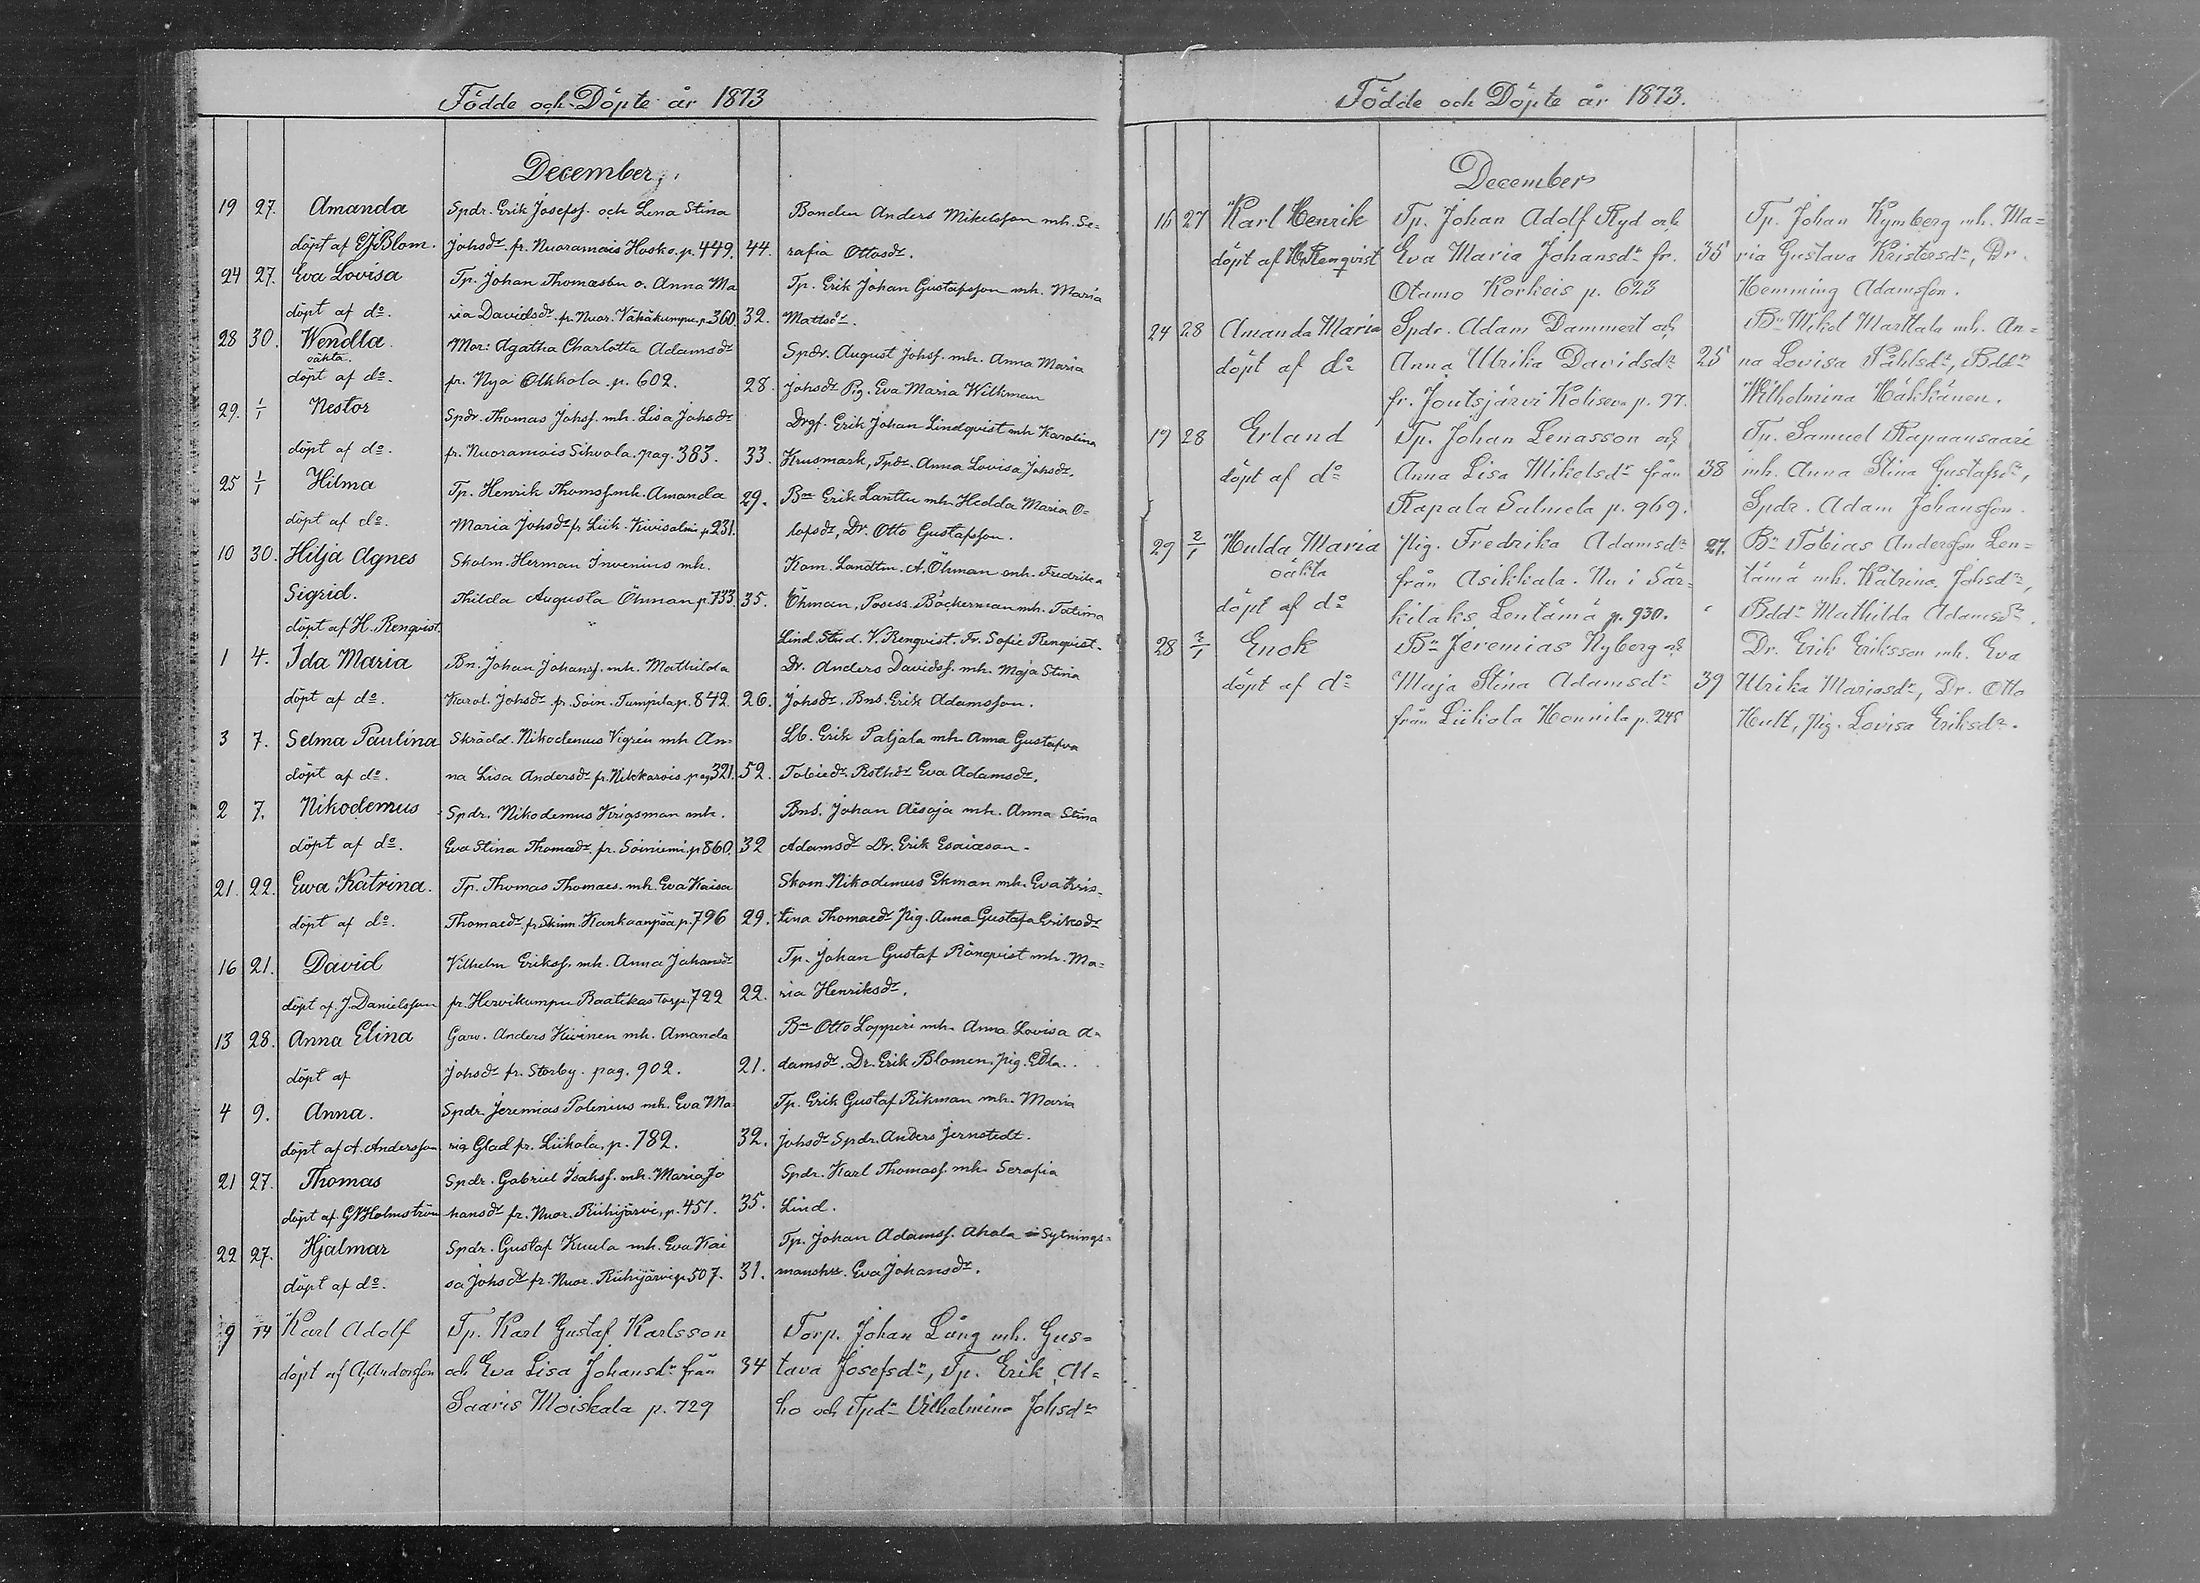 Födde och Döpte år 1873
December
19 27. Amanda Spdr. Erik Josefsf. och Lena Stina Bonden Anders Mikelsson mh. Se-
döpt af GJBlom. Johsdr. fr. Nuoramois Hosko. p. 449. 44. rafia Ottosdr.
24 27. Eva Lovisa Tp. Johan Thomasson o. Anna Ma Tp. Erik Johan Gustafsson mh. Maria
döpt af do. ria Davidsdr. fr. Nuor. Vähäkumpu. p. 360 32. Mattsdr.
28 30. Wendla Mor: Agatha Charlotta Adamsdr Spdr. August Johsf. mh. Anna Maria
oäkta.
döpt af do. fr. Nya Olkkola. p. 602. 28. Johsdr Pig. Eva Maria Wilkman
29. 1/1 Nestor Spdr. Thomas Johsf. mh. Lisa Johsdr Drgf. Erik Johan Lindqvist mh Karolina
döpt af do. fr. Nuoramois Sihvola. pag. 383. 33. Krusmark, Tpdr. Anna Lovisa Johsdr.
25 1/1 Hilma Tp. Henrik Thomsf. mh. Amanda 29. Bn Erik Lanttu mh. Hedda Maria O-
döpt af do. Maria Johsdr fr. Liik. Kivisalmi p. 231. lofsdr, Dr. Otto Gustafsson.
10 30. Hilja Agnes Skolm. Herman Invenius mh. Kom. Landtm. A. Öhman mh. Fredrika
Sigrid. Thilda Augusta Öhman p. 733 35. Öhman, Posess. Böckerman mh. Tatima
döpt af H. Renqvist. Lind. Stud. V. Renqvist. Fr. Sofie Renqvist.
1 4. Ida Maria Bn. Johan Johansf. mh. Mathilda Dr. Anders Davidsf. mh. Maja Stina
döpt af do. Karol. Johsdr fr. Soin. Tumpila p. 842. 26. Johsdr. Bns. Erik Adamsson.
3 7. Selma Paulina Skrädd. Nikodemus Vigrén mh An- Lb. Erik Paljala mh. Anna Gustafva
döpt af do. na Lisa Andersdr. fr. Nikkarois. pag 321. 52. Tobiedr. Rsthdr Eva Adamsdr.
2 7. Nikodemus Spdr. Nikodemus Krigsman mh. Bns. Johan Alsoja mh. Anna Stina
döpt af do. Eva Stina Thomædr. fr. Soiniemi. p 860. 32 Adamsdr Dr. Erik Esaiæson.
21. 22. Ewa Katrina. Tp. Thomas Thomaes. mh. Eva Kaisa Skom. Nikodemus Ekman mh. Eva Kris-
döpt af do. Thomaedr. fr. Skinn. Kankaanpää p. 796 29. tina Thomaedr Pig. Anna Gustafa Eriksdr
16 21. David Vilhelm Eriksf. mh. Anna Johansdr Tp. Johan Gustaf Rönqvist mh. Ma-
döpt af J. Danielsson fr. Hervikumpu Raatikas torp. 722 22. ria Henriksdr.
13 28. Anna Elina Garv. Anders Kivinen mh. Amanda Bn Otto Lopperi mh. Anna Lovisa A-
döpt af Johsdr fr. Storby. pag. 902. 21. damsdr. Dr. Erik Blomen. pig. Edla.
4 9. Anna. Spdr. Jeremias Polenius mh. Eva Ma Tp. Erik Gustaf Rikman mh. Maria
döpt af A. Andersson ria Glad fr. Liikola. p. 782. 32. Johsdr Spdr. Anders Jernstedt.
21 27. Thomas Spdr. Gabriel Isaksf. mh. Maria Jo Spdr. Karl Thomasf. mh. Serafia
döpt af GNHolmström hansdr fr. Nuor. Riihijärvi, p. 451. 35. Lind.
22 27. Hjalmar Spdr. Gustaf Kuula mh. Eva Kai Tp. Johan Adamsf. Ahola Sytnings-
döpt af do. sa Johsdr fr. Nuor. Riihijärvi p. 507. 31. manshu. Eva Johansdr.
9 14 Karl Adolf Tp. Karl Gustaf Karlsson Torp. Johan Lång mh. Gus-
döpt af A. Andersson och Eva Lisa Johansdr från 34 tava Josefsdr, Tp. Erik Al-
Saaris Moiskala p. 729 ho och Tpdr Vilhelmina Johsdr
Födde och Döpte år 1873.
December
16 27 Karl Henrik Tp. Johan Adolf Ryd och Tp. Johan Rymberg mh. Ma-
döpt af H. Renqvist Eva Maria Johansdr fr. 35 ria Gustava Kristersdr, Dr.
Otamo Korkeis p. 623 Hemming Adamsson.
24 28 Amanda Maria Spdr. Adam Dammert och Bn Mikel Marttala mh. An-
döpt af do Anna Ulrika Davidsdr 25 na Lovisa Påhlsdr, Bddr
fr. Joutsjärvi Kolisева p. 97. Wilhelmina Häkkänen.
19 28 Erland Tp. Johan Lenasson och Tn. Samuel Rapuansaari
döpt af do Anna Lisa Mikelsdr från 38 mh. Anna Stina Gustafsdr,
Rapala Salmela p. 969. Spdr. Adam Johansson.
29 2/1 Hulda Maria Pig. Fredrika Adamsdr 27. Bn Tobias Andersson Len-
oäkta från Asikkala. Nu i Sär- tämä mh. Katrina Johsdr,
döpt af do kilaks Lentämä p. 930. Bddr Mathilda Adamsdr.
28 2/1 Enok Bn Jeremias Nyberg och Dr. Erik Eriksson mh. Eva
döpt af do Maja Stina Adamsdr 39 Ulrika Mariasdr, Dr. Otto
från Liikola Honnila p. 245 Hult, pig. Lovisa Eriksdr.